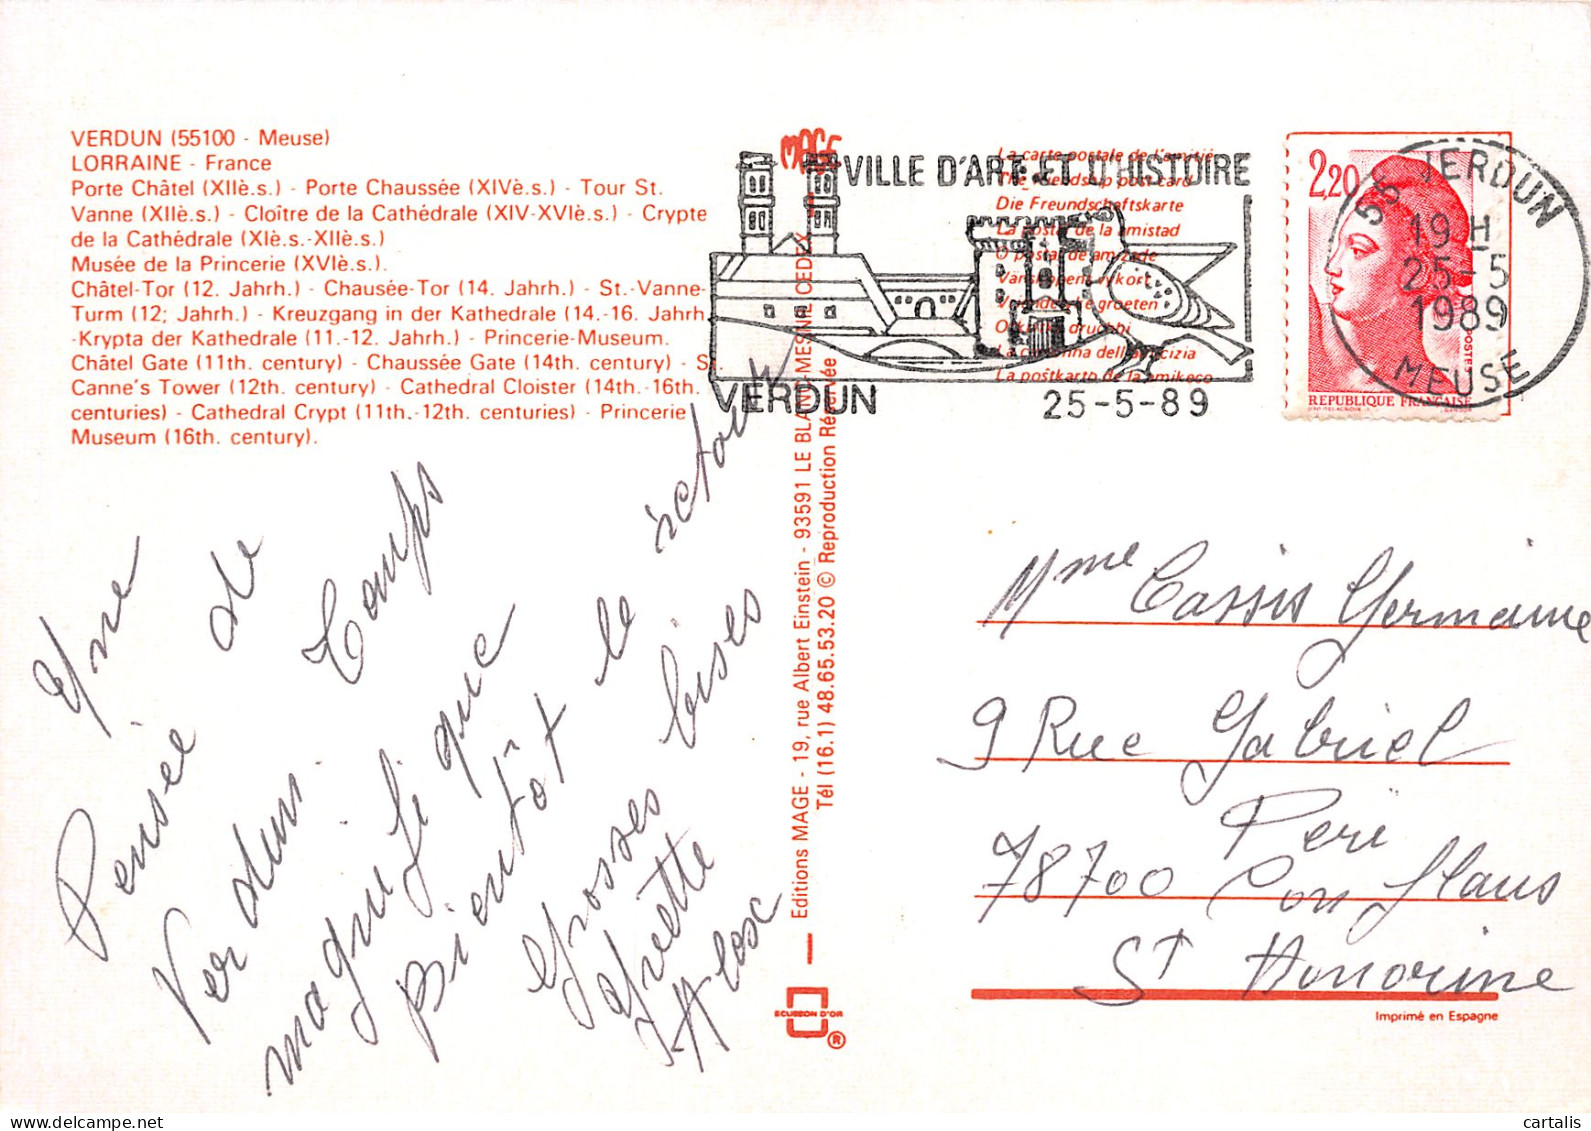 VERDUN (55100 - Meuse)
LORRAINE - France
Porte Châtel (XIIè.s.) - Porte Chaussée (XIVè.s.) - Tour St.
Vanne (XIIè.s.) - Cloître de la Cathédrale (XIV-XVIè.s.) - Crypte
de la Cathédrale (XIè.s.-XIIè.s.)
Musée de la Princerie (XVIè.s.).
Châtel-Tor (12. Jahrh.) - Chausée-Tor (14. Jahrh.) - St.-Vanne-
Turm (12; Jahrh.) - Kreuzgang in der Kathedrale (14.-16. Jahrh.
-Krypta der Kathedrale (11.-12. Jahrh.) - Princerie-Museum.
Châtel Gate (11th. century) - Chaussée Gate (14th. century) - St.
Canne's Tower (12th. century) - Cathedral Cloister (14th.-16th.
centuries) - Cathedral Crypt (11th.-12th. centuries) - Princerie
Museum (16th. century).
Une
Pensée de
Verdun. Temps
magnifique
Bientôt le retour
Grosses bises
Yvette
MAGE
Editions MAGE - 19, rue Albert Einstein - 93591 LE BLANC MESNIL CEDEX
Tél (16.1) 48.65.53.20 © Reproduction Réservée
ECUSSON D'OR
®
La carte postale de l'amitié
The friendship post card
Die Freundschaftskarte
La postal de la amistad
O postal de amizade
La cartolina dell'amicizia
La poŝtkarto de la amikeco
VILLE D'ART ET D'HISTOIRE
VERDUN
25-5-89
2,20
POSTES
REPUBLIQUE FRANÇAISE
55 VERDUN
19 H
25-5
1989
MEUSE
Mme Cassis Germaine
9 Rue Gabriel
Péri
78700 Conflans
St Honorine
Imprimé en Espagne
cartalis